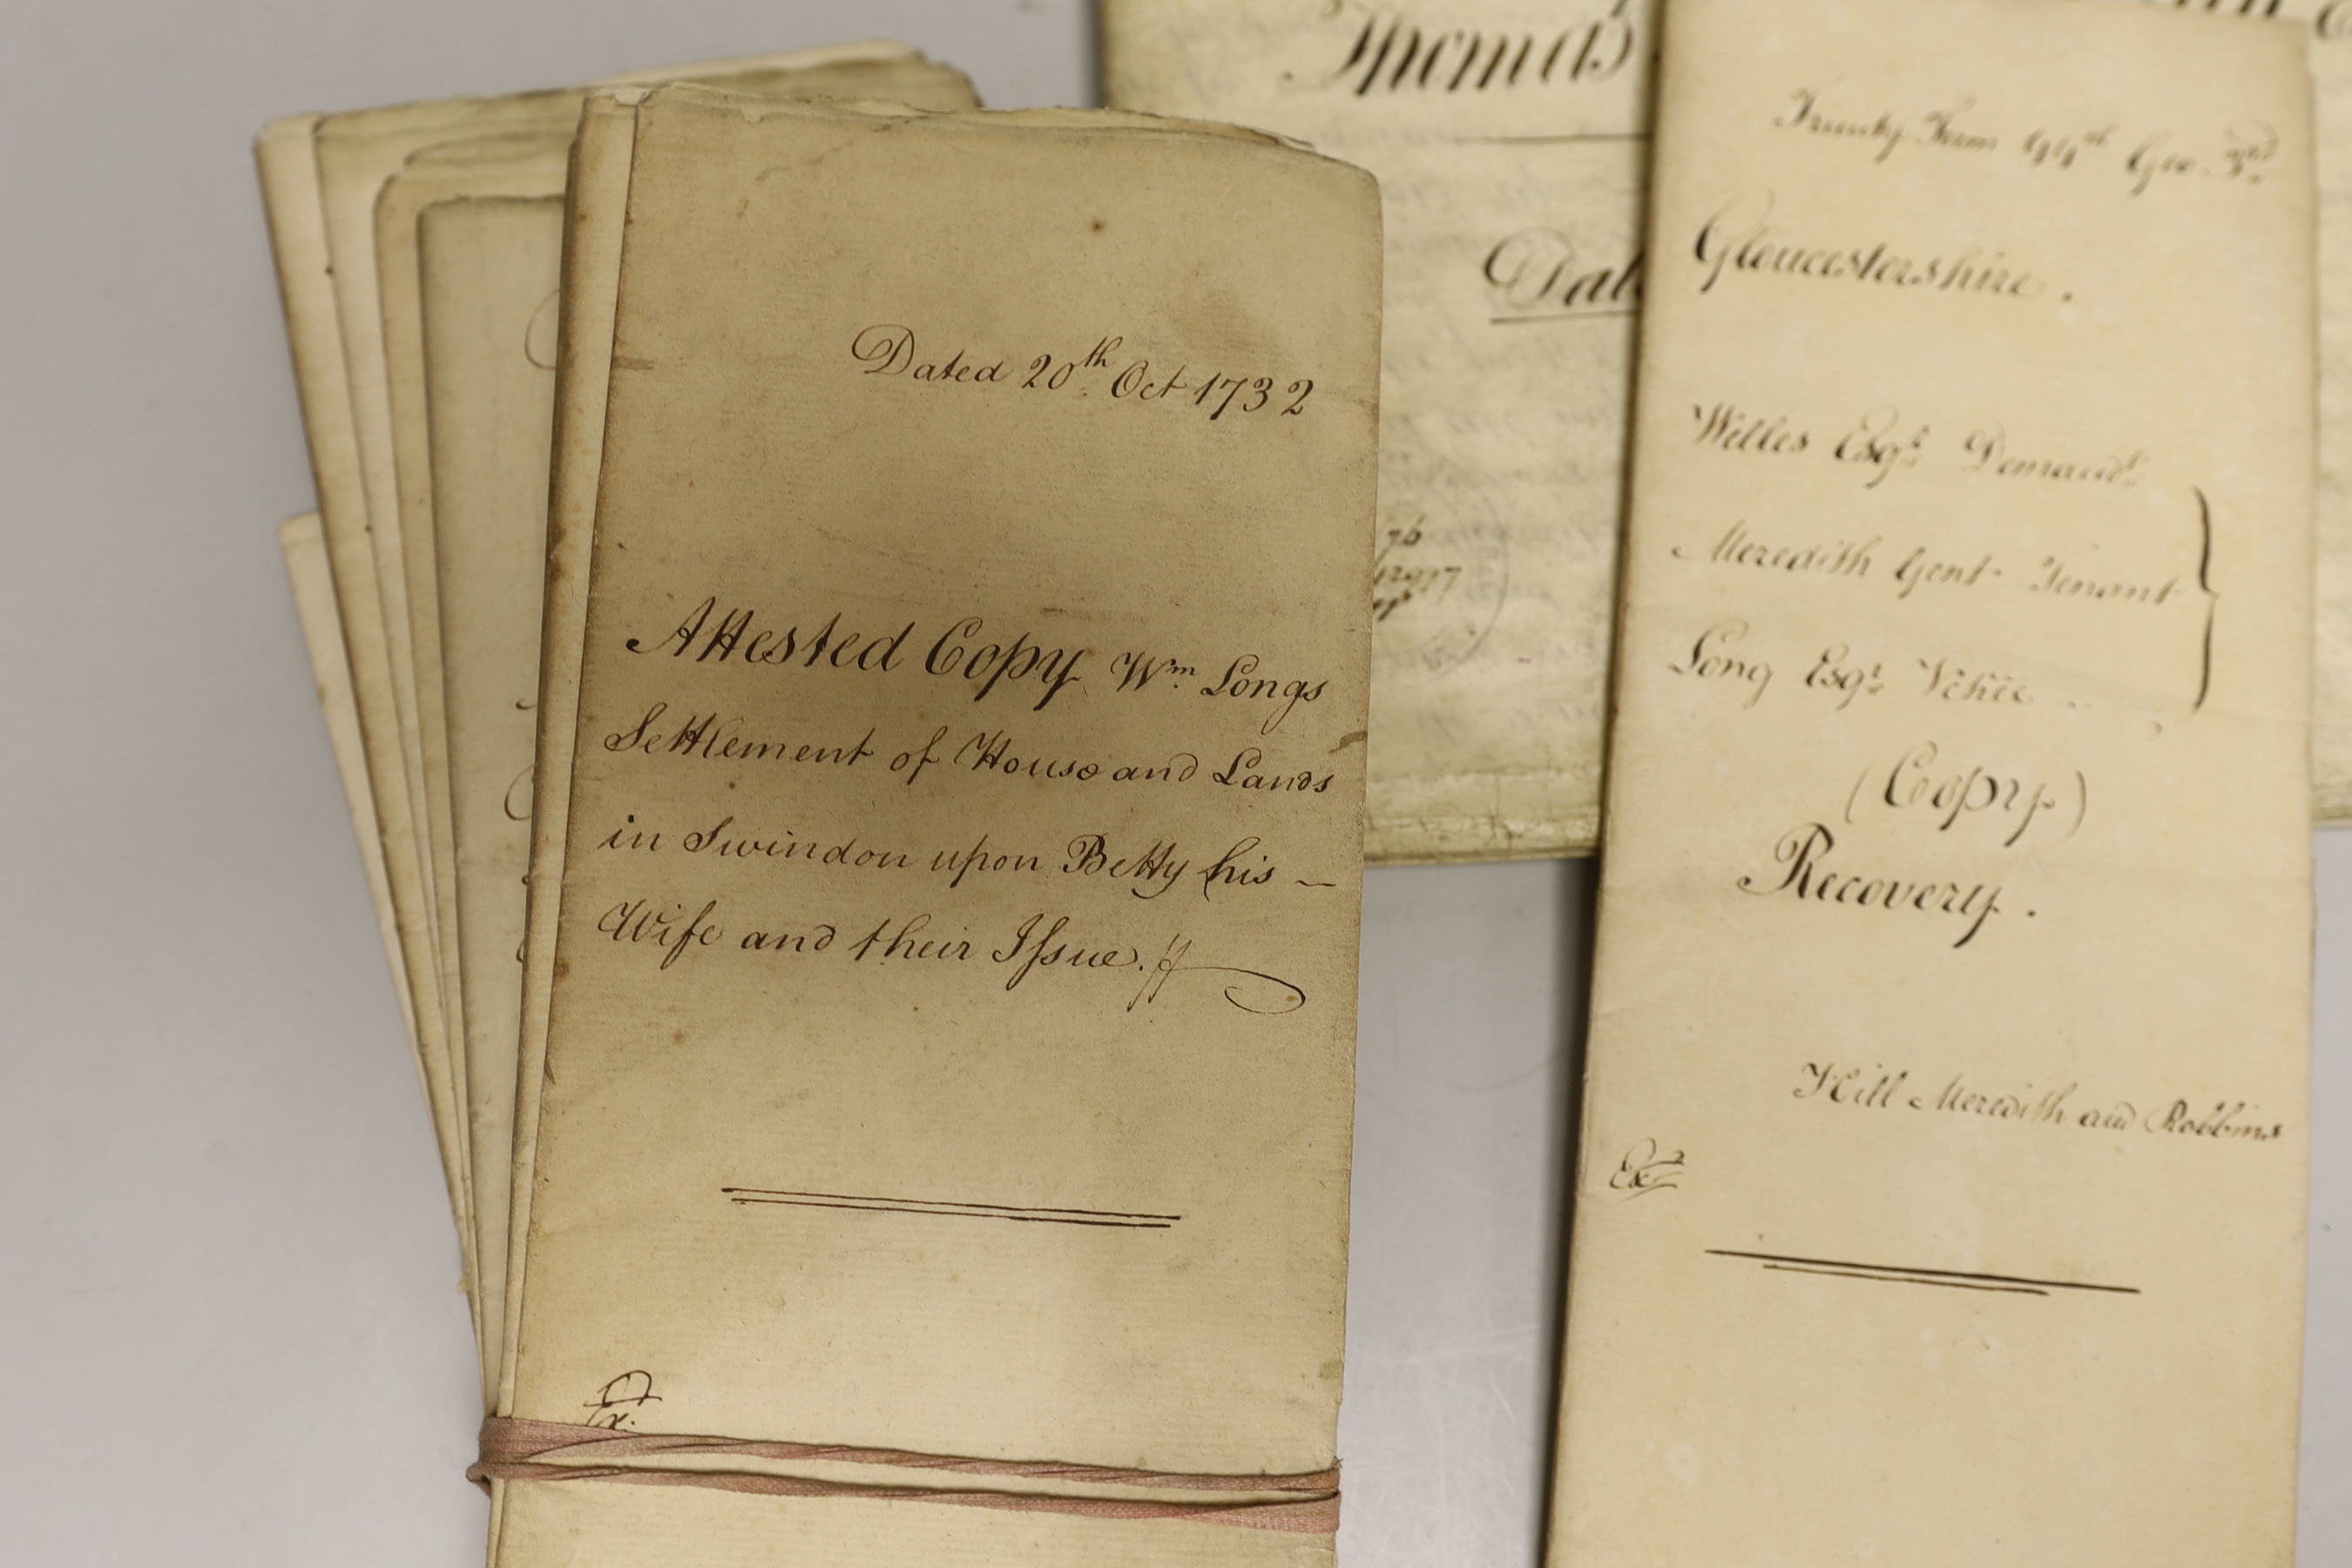 Dated 20th Oct 1732
Attested Copy Wm. Longs
Settlement of House and Lands
in Swindon upon Betty his —
Wife and their Issue.
Ex.
Thomas
Trinity Term 44th Geo. 3rd.
Gloucestershire.
Willes Esqr. Demandt.
Meredith Gent. Tenant
Long Esqr. Vouchee
(Copy)
Recovery.
Hill Meredith and Robbins
Ex